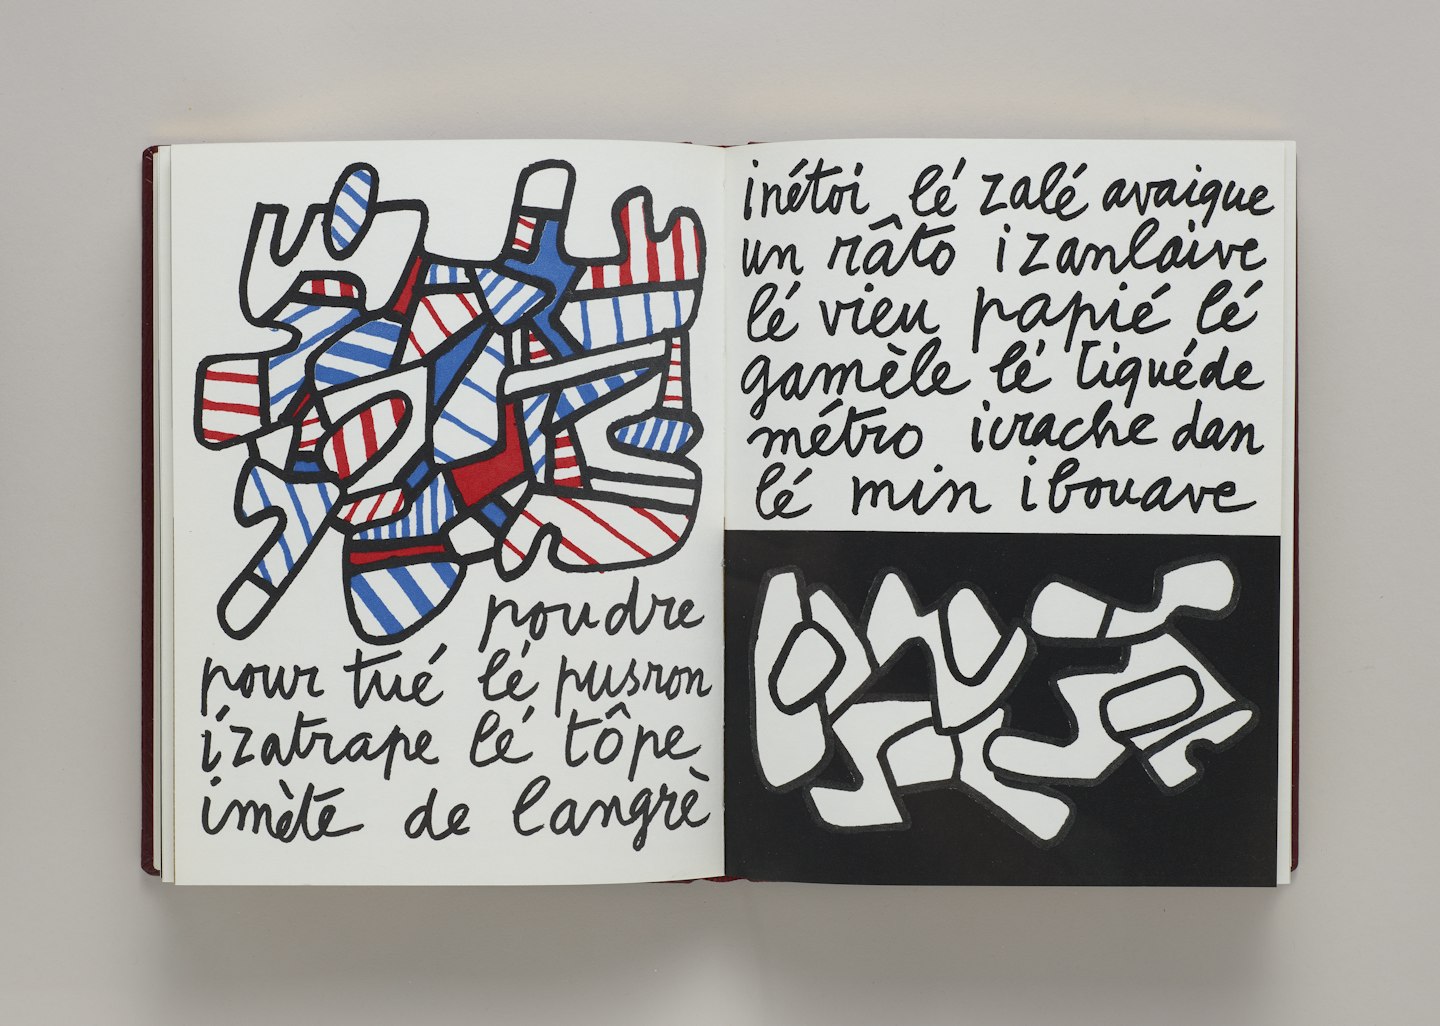 poudre
pour tué lé pusron
izatrape lé tôpe
imète de langrè
inétoi lé zalé avaique
un râto izanlaive
lé vieu papié lé
gamèle lé tiquéde
métro irache dan
lé min ibouave